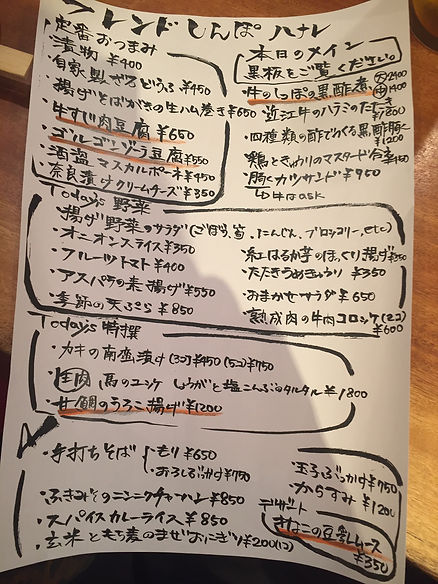 フレンドしんぽ ハナレ
定番おつまみ
・漬物 ¥400
・自家製ざるどうふ ¥450
・揚げそばがきの生ハム巻き ¥600
・牛すじ肉豆腐 ¥650
・ゴルゴンゾーラ豆腐 ¥550
・酒盗マスカルポーネ ¥450
・奈良漬けクリームチーズ ¥350
本日のメイン
黒板をご覧ください。
・牛のしっぽの黒酢煮 大2400
小1400
・近江牛のハラミのたたき
¥1800
・四種類の酢でつくる黒酢豚
¥1200
・鶏ときゅうりのマスタード合え ¥450
・豚カツサンド ¥950
↳牛はask
Todays 野菜
・揚げ野菜のサラダ(ごぼう、 にんじん、ブロッコリー、etc)
・オニオンスライス ¥350
・フルーツトマト ¥400
・アスパラの素揚げ ¥550
・季節の天ぷら ¥850
・紅はるか芋のほっくり揚げ ¥550
・たたきうめきゅうり ¥350
・おまかせサラダ ¥650
・熟成肉の牛肉コロッケ(2コ)
¥600
Todays 特撰
・カキの南蛮漬け(3コ)¥450 (5コ)¥750
・生肉 馬のユッケ しょうがと塩こんぶのタルタル ¥1800
・甘鯛のうろこ揚げ ¥1200
・手打ちそば
・もり ¥650
・おろしぶっかけ ¥750
・玉子ぶっかけ ¥750
・からすみ ¥1200
・ふきみそのニンニクチャーハン ¥850
・スパイスカレーライス ¥850
・玄米ともち麦のまぜおにぎり ¥200(1コ)
デザート
・きなこの豆乳ムース
¥350